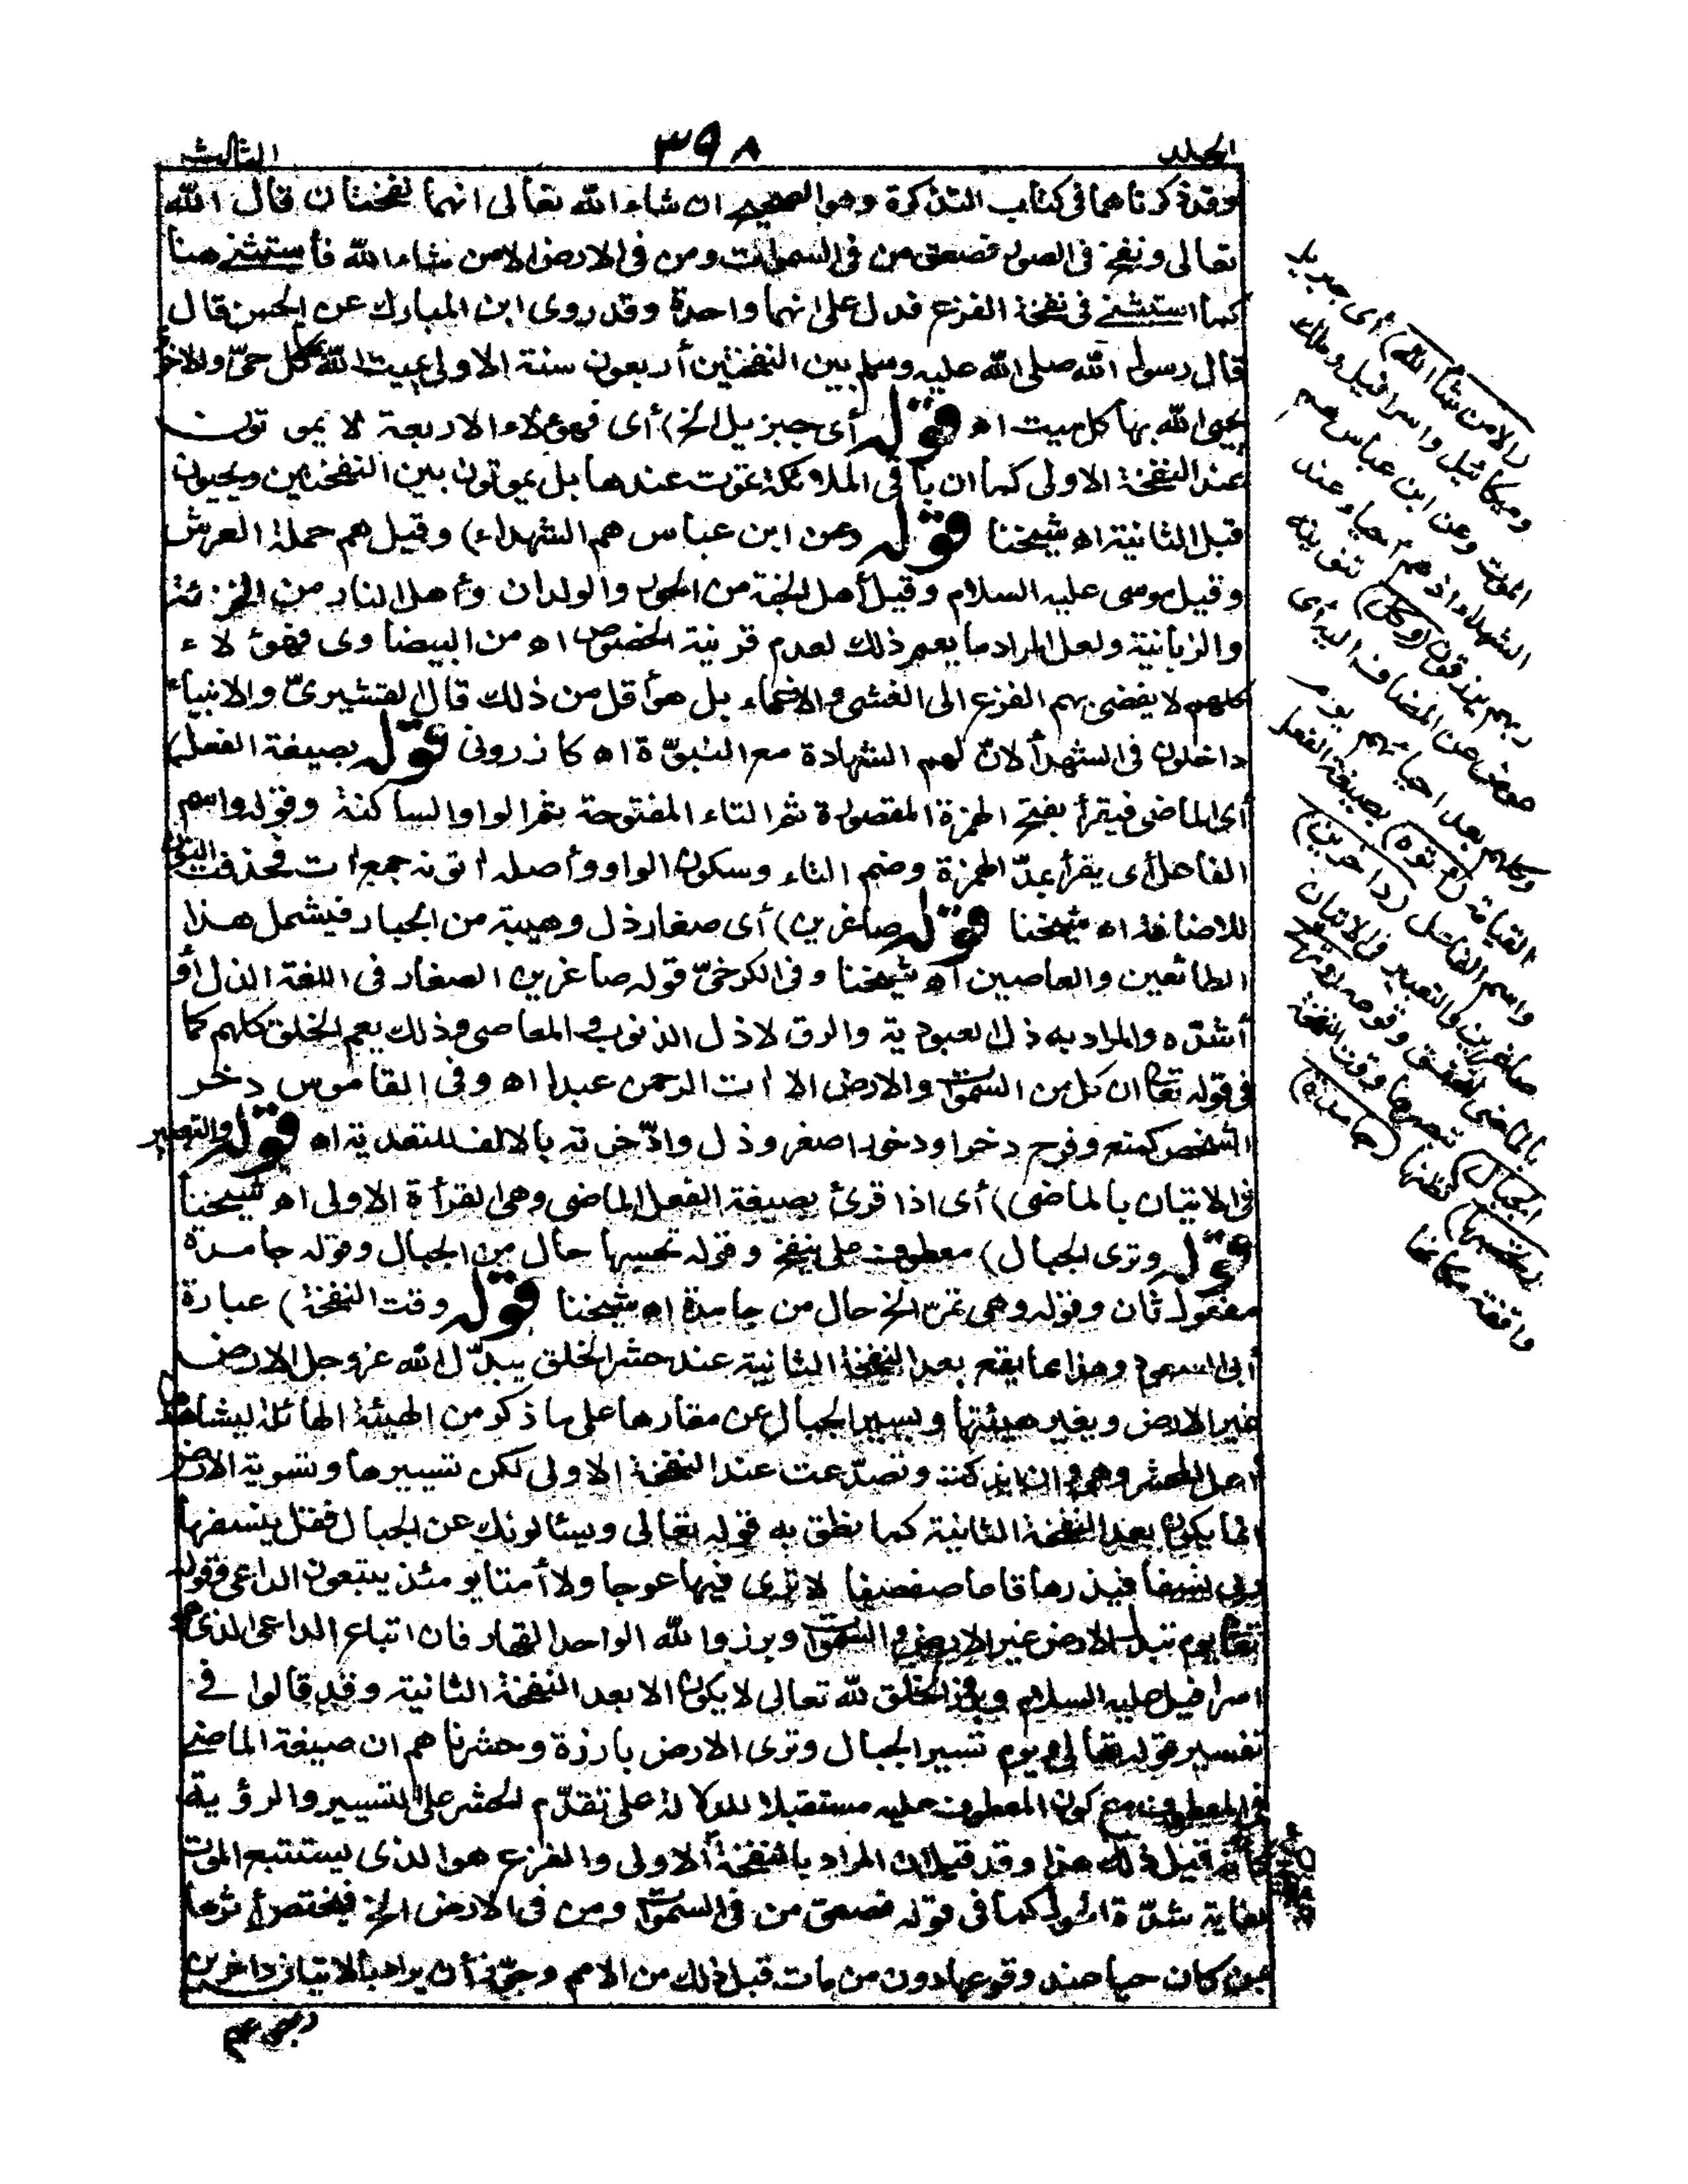 الجلد ٣٩٨ الثالث
وقد ذكرناهما فى كتاب التذكرة وهو الصحيح ان شاء الله تعالى انهما نفختان قال الله
تعالى ونفخ فى الصور فصعق من فى السموات ومن فى الارض الا من شاء الله فأستثنى هنا
كما استثنى فى نفخة الفزع فدل على انهما واحدة وقد روى ابن المبارك عن الحسن قال
قال رسول الله صلى الله عليه وسلم بين النفختين أربعون سنة الاولى يميت الله بها كل حىّ والاخرى
يحيى الله بها كل ميت اه قوله أى جبريل الخ) أى فهؤلاء الاربعة لا يموتون
عند النفخة الاولى كما ان باقى الملائكة تموت عندها بل يموتون بين النفختين ويحيون
قبل الثانية اه شيخنا قوله وعن ابن عباس هم الشهداء) وقيل هم حملة العرش
وقيل موسى عليه السلام وقيل أهل الجنة من الحور والولدان وأهل النار من الخزنة
والزبانية ولعل المراد ما يعم ذلك لعدم قرينة الخصوص اه من البيضاوى فهؤلاء
كلهم لا يفضى بهم الفزع الى الغشى والاغماء بل هو أقل من ذلك قال القشيرىّ والانبياء
داخلون فى الشهداء لانّ لهم الشهادة مع النبوّة اه كازرونى قوله بصيغة الفعل)
أى الماضى فيقرأ بفتح الهمزة المقصورة ثم التاء المفتوحة ثم الواو الساكنة وقوله واسم
الفاعل أى يقرأ بمدّ الهمزة وضم التاء وسكون الواو وأصله اتونه جمع ات فحذفت النون
للاضافة اه شيخنا قوله صاغرين) أى صغار ذل وهيبة من الجبار فيشمل هذا
الطائعين والعاصين اه شيخنا وفى الكرخىّ قوله صاغرين الصغار فى اللغة الذل أو
أشدّه والمراد به ذل العبودية والرق لا ذل الذنوب والمعاصى وذلك يعم الخلق كلهم كما
فى قوله تعالى ان كل من السموات والارض الا ات الرحمن عبدا اه وفى القاموس دخر
الشخص كمنع وفرح دخرا ودخورا صغر وذل وادّخرته بالالف للتعدية اه قوله والتعبير
فى الاتيان بالماضى) أى اذا قرئ بصيغة الفعل الماضى وهى القرأة الاولى اه شيخنا
قوله وترى الجبال) معطوف على ينفخ وقوله تحسبها حال من الجبال وقوله جامدة
مفعول ثان وقوله وهى تمرّ الخ حال من جامدة اه شيخنا قوله وقت النفخة) عبارة
أبى السعود وهذا مما يقع بعد النفخة الثانية عند حشر الخلق يبدّل الله عز وجل الارض
غير الارض ويغير هيئتها ويسير الجبال عن مقارها على ما ذكر من الهيئة الهائلة ليشاهدها
أهل المحشر وهى وان اندكت وتصدّعت عند النفخة الاولى لكن تسييرها وتسوية الارض
انما يكون بعد النفخة الثانية كما نطق به قوله تعالى ويسئالونك عن الجبال فقل ينسفها
ربى نسفا فيذرها قاعا صفصفا لا ترى فيها عوجا ولا أمتا يومئذ يتبعون الداعى وقوله
تعالى يوم تبدل الارض غير الارض والسموات وبرزوا لله الواحد القهار فان اتباع الداعى الذى هو
اسرافيل عليه السلام وبروز الخلق لله تعالى لا يكون الا بعد النفخة الثانية وقد قالوا فى
تفسير قوله تعالى ويوم تسير الجبال وترى الارض بارزة وحشرناهم ان صيغة الماضى
فى المعطوف مع كون المعطوف عليه مستقبلا للدلالة على تقدّم الحشر على التسيير والرؤية
كأنه قيل ذلك هذا وقد قيل ان المراد بالنفخة الاولى والفزع هو الذى يستتبع الموت
لغاية شدّة الهول كما فى قوله فصعق من فى السموات ومن فى الارض الخ فيختص أثرها
بمن كان حيا عند وقوعها دون من مات قبل ذلك من الامم وجوّز أن يراد بالاتيان داخرين
(الا من شاء الله) أى جبريل
وميكائيل واسرافيل وملك
الموت وعن ابن عباس هم
الشهداء اذ هم احياء عند
ربهم يرزقون (وكل) تنوينه
عوض عن المضاف اليه أى
وكلهم بعد احيائهم يوم
القيامة (اتوه) بصيغة الفعل
واسم الفاعل (داخرين)
صاغرين والتعبير فى الاتيان
بالماضى لتحقق وقوعه (وترى
الجبال) تبصرها وقت النفخة
(تحسبها) تظنها (جامدة)
واقفة مكانها